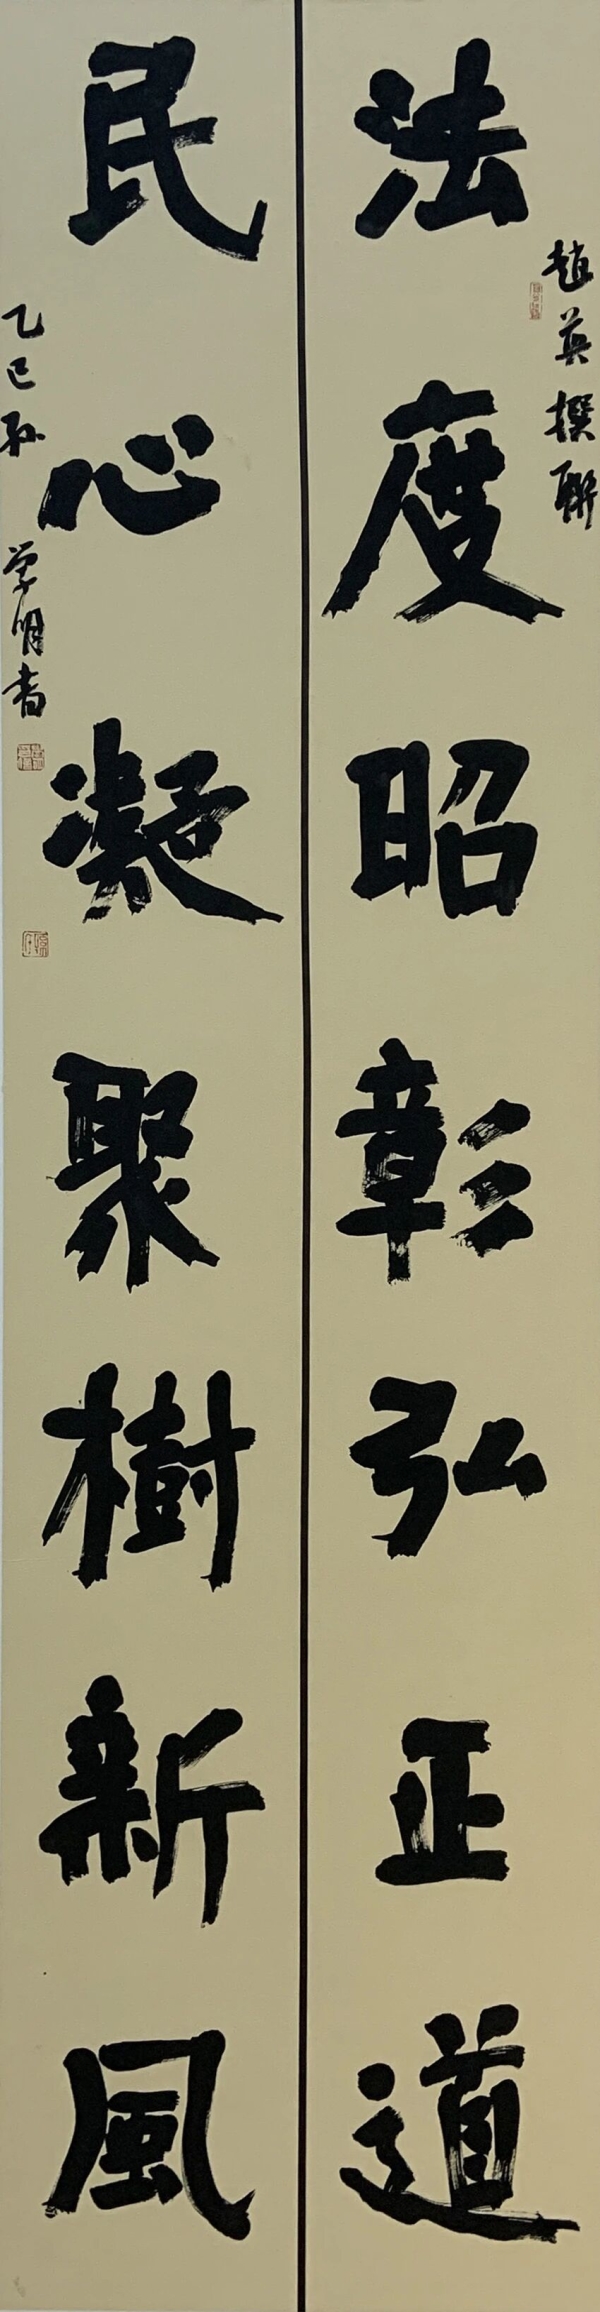 趙英撰聯
法度昭彰弘正道
民心凝聚樹新風
乙巳孙学明書